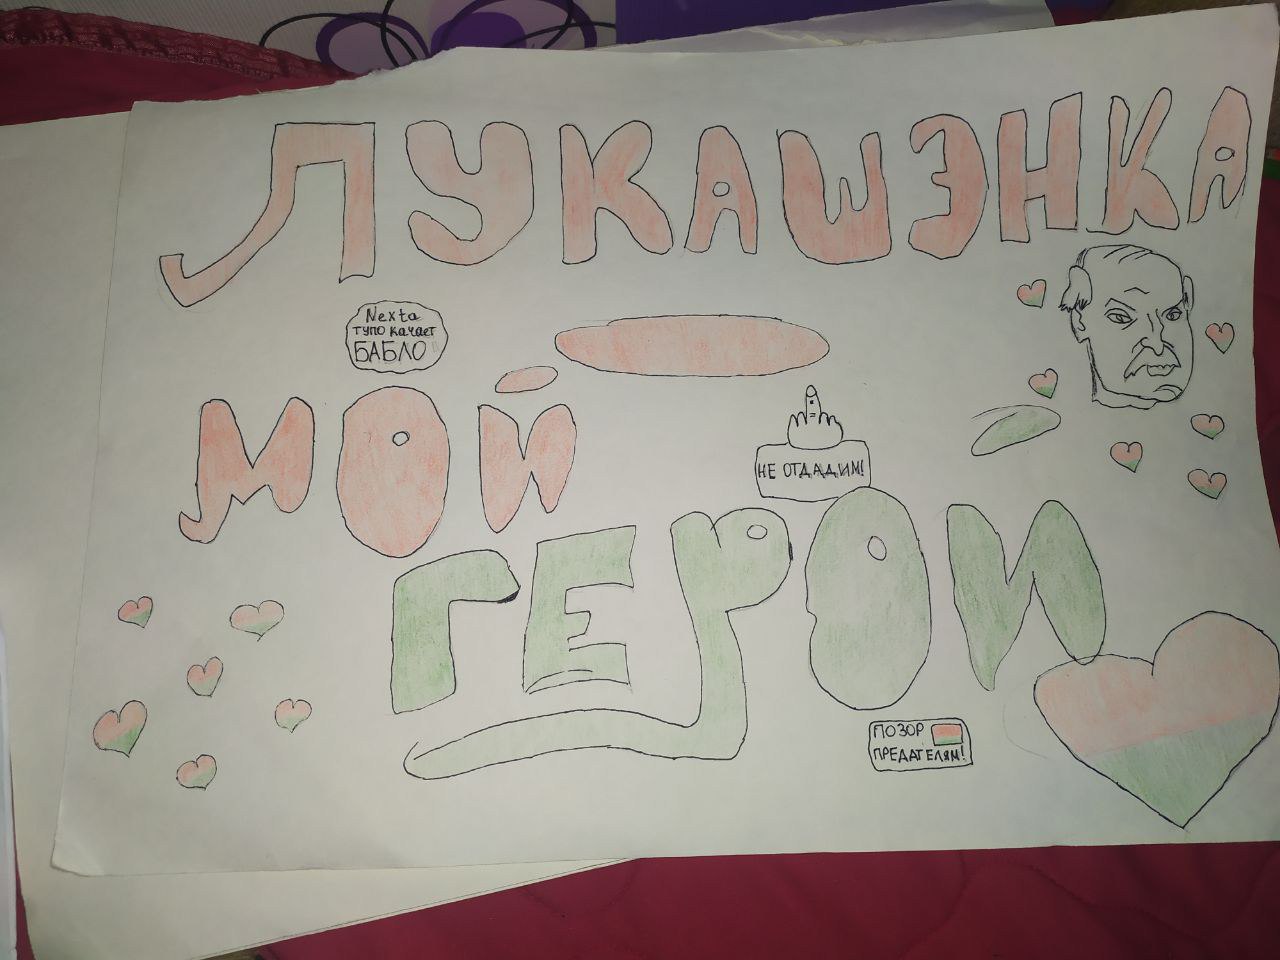 ЛУКАШЭНКА
Nexta
тупо качает
БАБЛО
МОЙ
НЕ ОТДАДИМ!
ГЕРОЙ
ПОЗОР
ПРЕДАТЕЛЯМ!